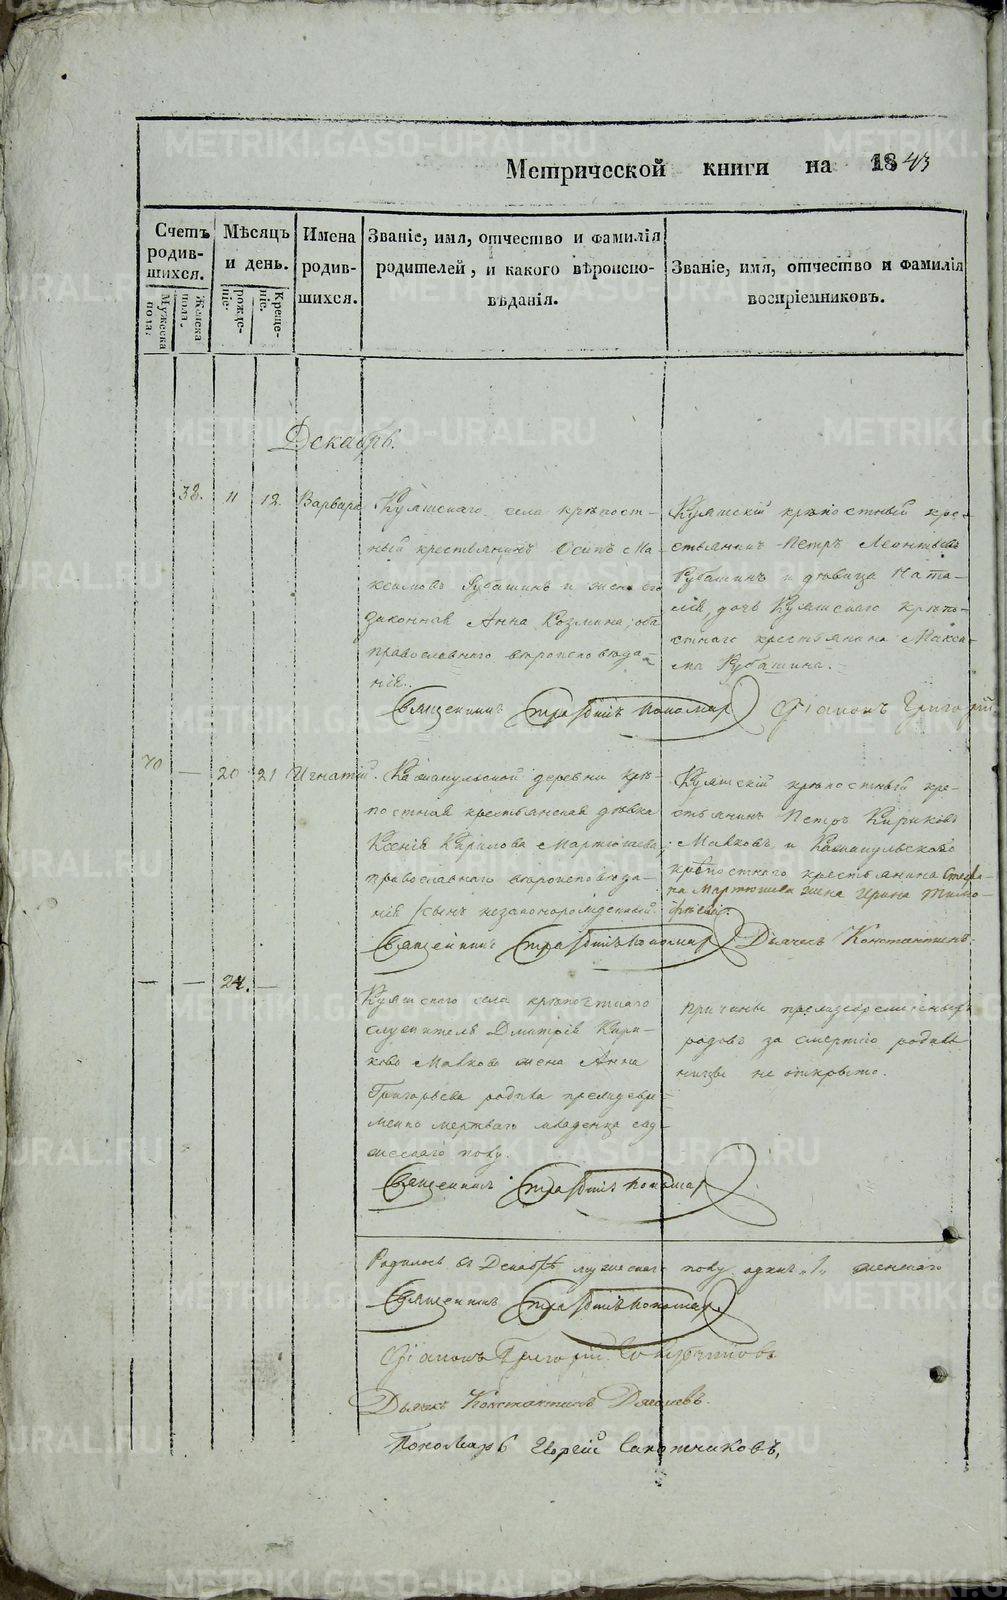 Метрической книги на 1843
Счетъ родив-шихся.
Мужеска пола.
Женска пола.
Мѣсяцъ и день.
рожде-ніе.
Креще-ніе.
Имена родив-шихся.
Званіе, имя, отчество и фамилія
родителей, и какого вѣроиспо-
вѣданія.
Званіе, имя, отчество и фамилія
воспріемниковъ.
Декабрь.
38. 11 12 Варвара
Куяшскаго села крѣпост-
ный крестьянинъ Осипъ Ма-
ксимовъ Рубашинъ и жена его
законная Анна Козмина, оба
православнаго вѣроисповѣда-
нія.
Куяшскій крѣпостный кре-
стьянинъ Петръ Леонтьевъ
Рубашинъ и дѣвица Ната-
лія, дочь Куяшскаго крѣпо-
стнаго крестьянина Макси-
ма Рубашина.
Священникъ Пономар Діаконъ Григорій
70 — 20 21 Игнатій.
деревни крѣ-
постная крестьянская дѣвка
Ксенія Кирилова Мартюшева,
православнаго вѣроисповѣда-
нія сынъ незаконорожденный.
Куяшскій крѣпостный кре-
стьянинъ Петръ Кириковъ
и
крѣпостнаго крестьянина Стефа-
на Мартюшева жена Ирина Тимо-
фѣева.
Священникъ Дьячекъ Константинъ
— — 24. —
Куяшскаго села крѣпостнаго
служителя Дмитрія Кири-
кова жена Анна
Григорьева родила преждевре-
менно мертваго младенца
женскаго полу.
Причины преждевременныхъ
родовъ за смертію родиль-
ницы не открыто.
Священникъ
Родилось въ Декабрѣ мужескаго полу одинъ „1„ женскаго
Священникъ
Діаконъ Григорій
Дьячекъ Константинъ
Пономарь Георгій Сапожниковъ,
METRIKI.GASO-URAL.RU